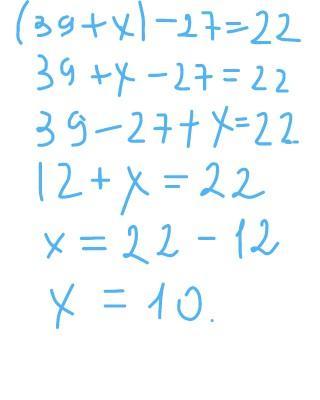 (39+x)-27=22
39+x-27=22
39-27+x=22
12+x=22
x=22-12
x=10.